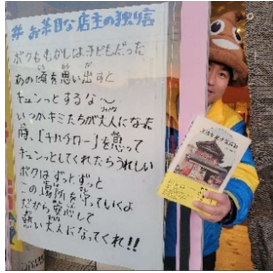 #お茶目な店主の独り言
ボクもむかしは子どもだった
あの頃を思い出すと
キュンっとするな〜
いつかキミたちが大人になった
時、「キハチロー」を想って
キュンっとしてくれたらうれしい
ボクはずっとずっと
この場所を守っていくよ
だから安心して
熱い大人になってくれ!!